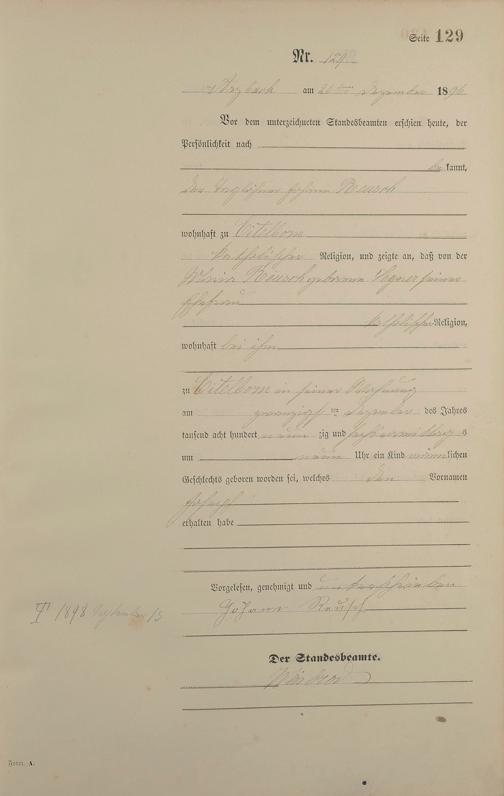 Seite 129
Nr. 129
am 21ten Dezember 1896
Vor dem unterzeichneten Standesbeamten erschien heute, der
Persönlichkeit nach
be kannt,
der Taglöhner Johann Reusch
wohnhaft zu Eitelborn
katholischer Religion, und zeigte an, daß von der
Maria Reusch geborene seiner
Ehefrau
katholischer Religion,
wohnhaft bei ihm
zu Eitelborn in seiner Wohnung
am zwanzigsten Dezember des Jahres
tausend acht hundert neun zig und sechs vormittags
um neun Uhr ein Kind männlichen
Geschlechts geboren worden sei, welches den Vornamen
Joseph
erhalten habe
Vorgelesen, genehmigt und unterschrieben
Johann Reusch
† 1898 September 15
Der Standesbeamte.
Form. A.